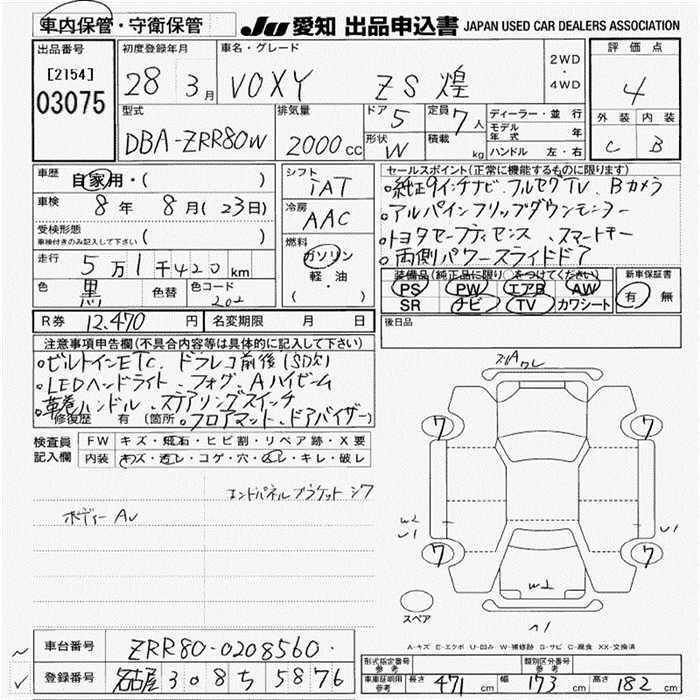 車内保管・守衛保管 JU 愛知 出品申込書 JAPAN USED CAR DEALERS ASSOCIATION
出品番号 [2154] 03075
初度登録年月 28 3月
車名・グレード VOXY ZS 煌
2WD・4WD
評価点 4
外装 C 内装 B
型式 DBA-ZRR80W
排気量 2000cc
ドア 5
形状 W
定員 7人
積載 kg
ディーラー・並行
モデル年式 年
ハンドル 左・右
車歴 自家用・( )
車検 8年 8月(23日)
受検形態 ( )
車検付きのみ記入して下さい
走行 5万1千420km
色 黒 色替 色コード 202
シフト IAT
冷房 AAC
燃料 ガソリン
軽・油
( )
セールスポイント(正常に機能するものに限ります)
純正9インチナビ、フルセグTV、Bカメラ
アルパインフリップダウンモニター
トヨタセーフティセンス、スマートキー
両側パワースライドドア
装備品(純正品に限り○をつけてください)
PS PW エアB AW
SR ナビ TV カワシート
新車保証書 有 無
R券 12,470円 名変期限 月 日
後日品
注意事項申告欄(不具合内容等は具体的に記入して下さい)
ビルトインETC、ドラレコ前後(SD欠)
LEDヘッドライト、フォグ、Aハイビーム
革巻ハンドル、ステアリングスイッチ
修復歴 有 (箇所 フロアマット、ドアバイザー)
検査員記入欄
FW キズ・飛石・ヒビ割・リペア跡・X要
内装 キズ・汚レ・コゲ・穴・スレ・キレ・破レ
エンドパネルブラケットシワ
ボディーAU
ワレ
7 7
W2
U1 U1
7 7
W2
スペア
A-キズ E-エクボ U-凹み W-補修跡 S-サビ C-腐食 XX-交換済
車台番号 ZRR80-0208560
登録番号 名古屋 308 ち 5876
型式指定番号 参考 類別区分番号 参考
車庫証明用参考 長さ 471cm 幅 173cm 高さ 182cm